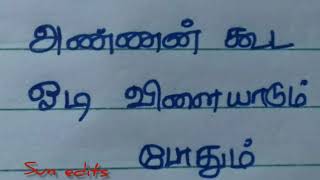 அண்ணன் கூட
ஓடி விளையாடும்
போதும்
Sun edits